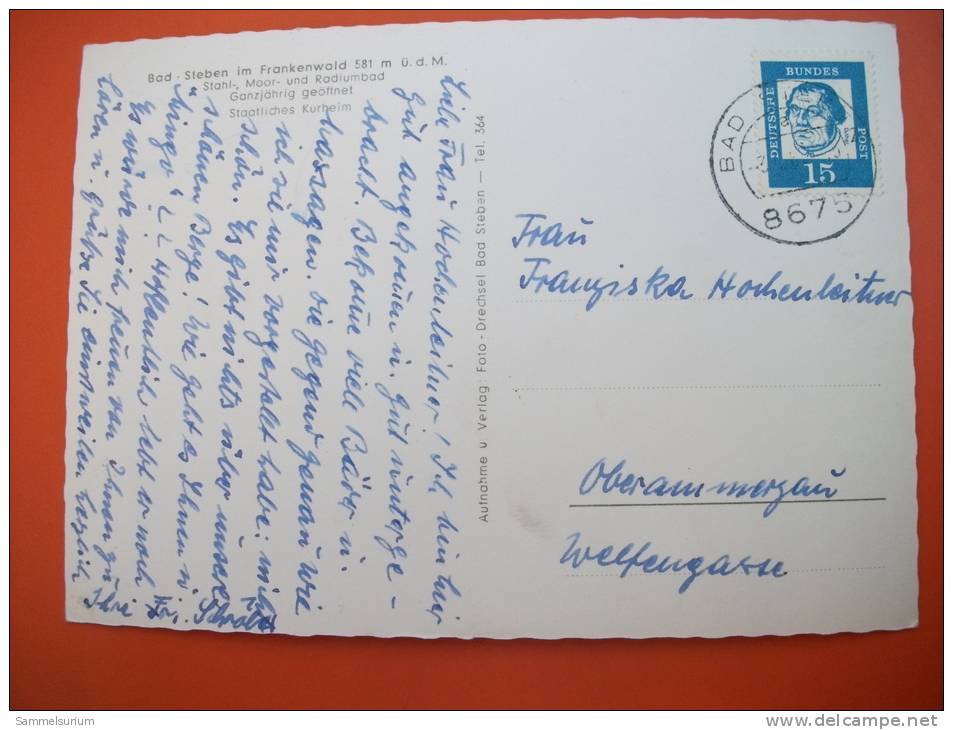 Bad-Steben im Frankenwald 581 m ü. d. M.
Stahl-, Moor- und Radiumbad
Ganzjährig geöffnet
Staatliches Kurheim
Liebe Frau Hochenleitner! Ich bin hier
gut angekommen u. gut unterge-
bracht. Bekome viele Bäder u.
Massagen. Die Gegend genau wie
ich sie mir vorgestellt habe: nicht
schön. Es geht nichts über unsere
schönen Berge! Wie geht es Ihnen u.
"Mingo"? Hoffentlich lebt er noch
Es würde mich freuen von Ihnen zu
hören u. grüße Sie einstweilen herzlich
Ihre Fr. Schrott
Aufnahme u Verlag: Foto - Drechsel Bad Steben — Tel. 364
DEUTSCHE
BUNDES
POST
15
BAD
8675
Frau
Franziska Hochenleitner
Oberammergau
Welfengasse
Sammelsurium
delcampe.net